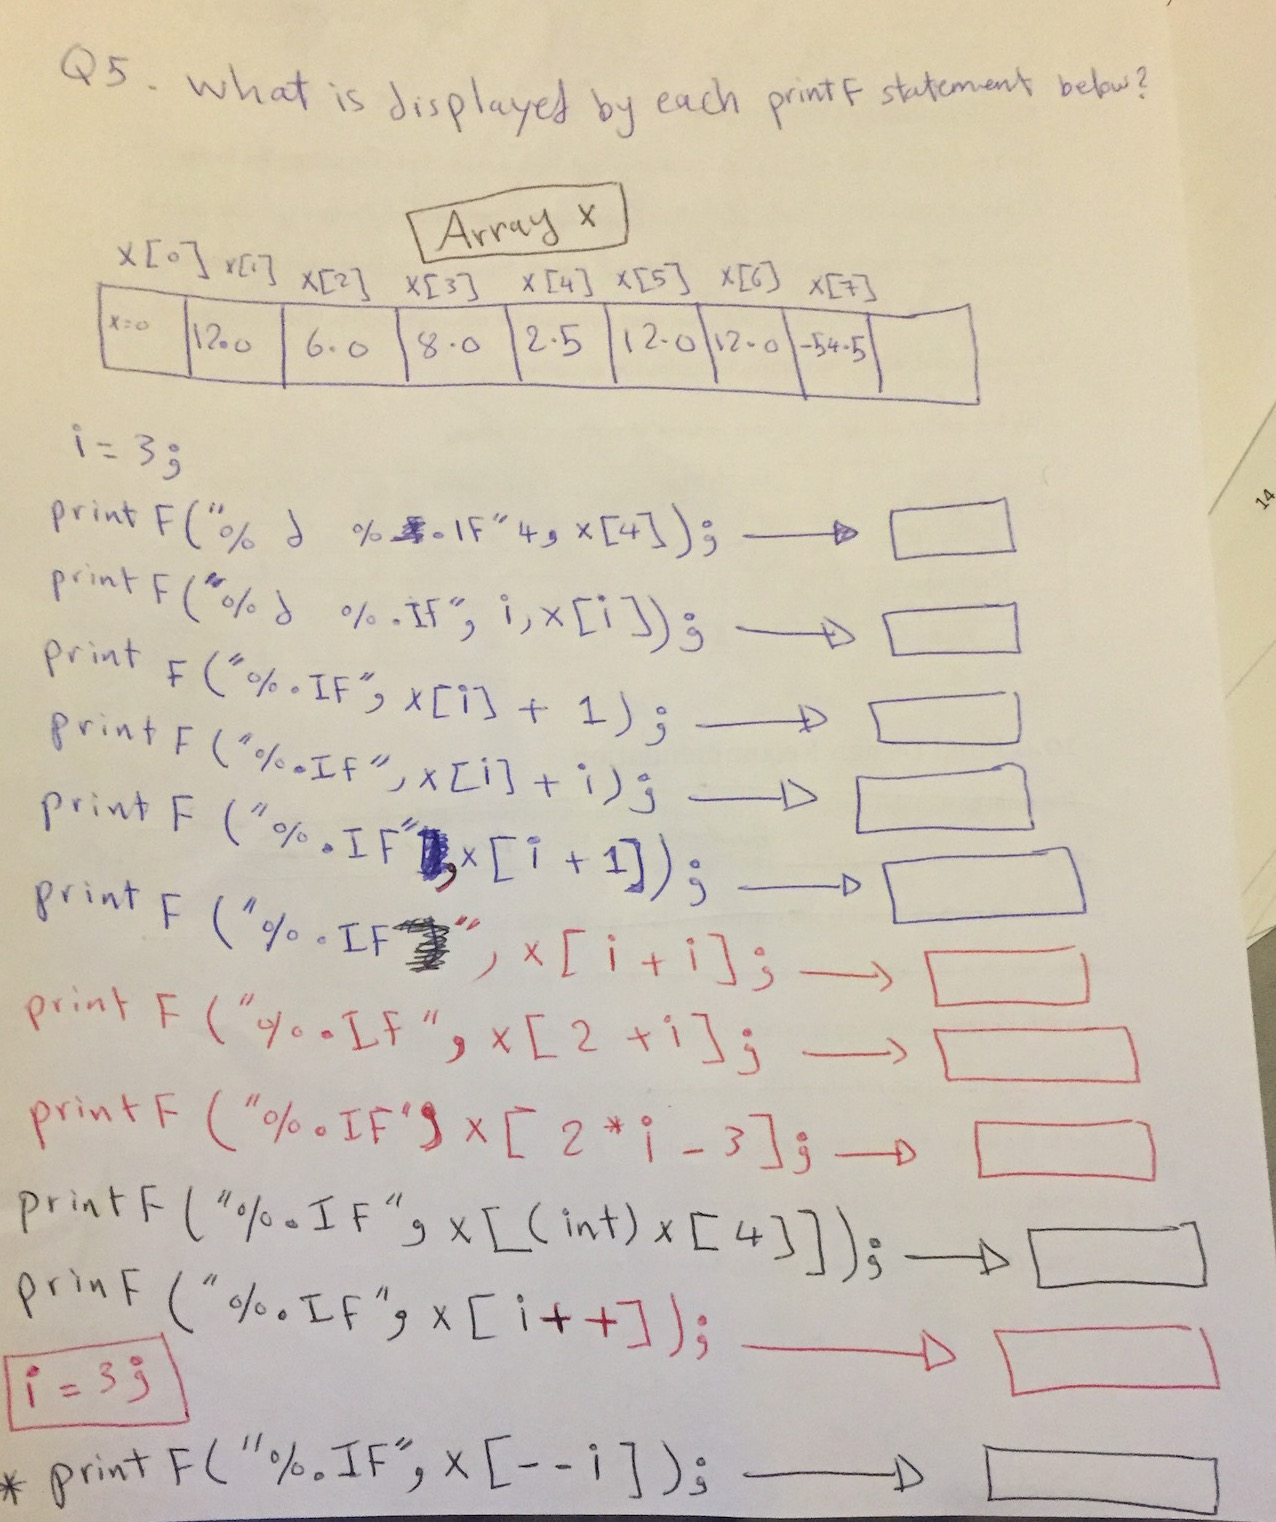 Q5. what is displayed by each printF statement below?
Array x
x[0] x[1] x[2] x[3] x[4] x[5] x[6] x[7]
x=0 12.0 6.0 8.0 2.5 12.0 12.0 -54.5
i = 3;
printF("% d %.IF" 4, x[4]);
printF("%d %.IF", i, x[i]);
print F("%.IF", x[i] + 1);
print F("%.If", x[i] + i);
print F("%.IF", x[i + 1]);
print F("%.IF", x[i + i];
print F("%.IF", x[2 + i];
printF("%.IF", x[2 * i - 3];
printF("%.IF", x[(int) x[4]]);
prinF("%.IF", x[i++]);
i = 3;
* printF("%.IF", x[--i]);
14